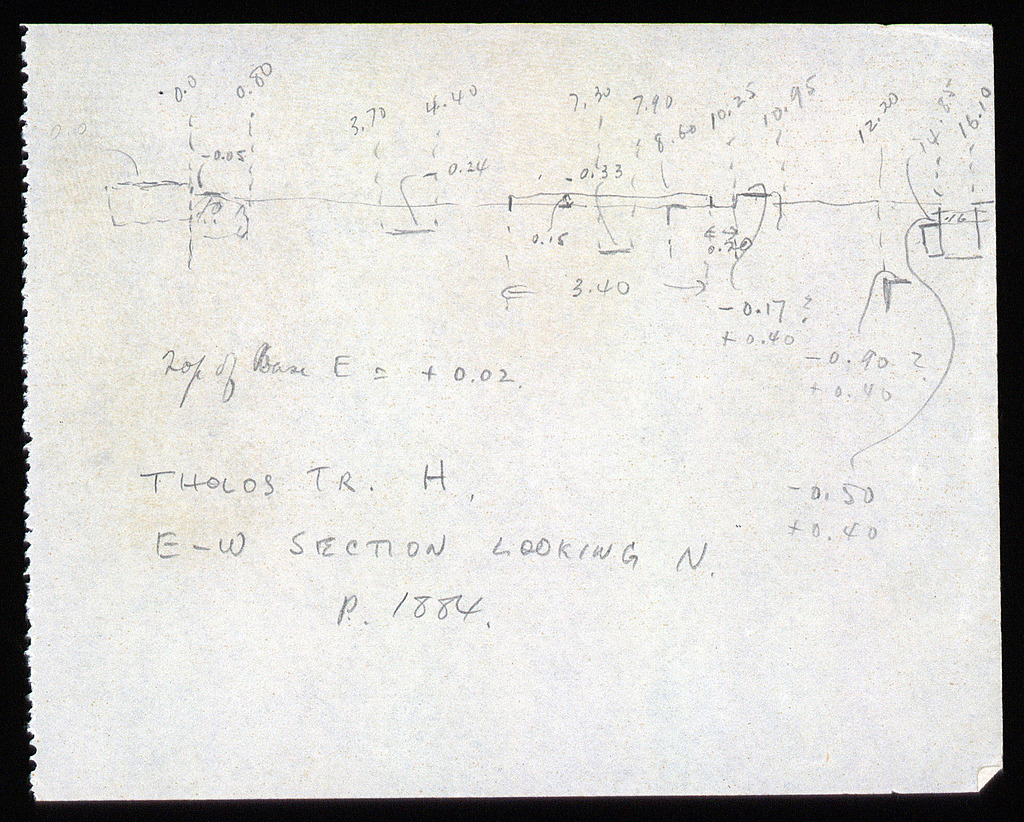 0.0 0.80 3.70 4.40 7.30 7.90 8.60 10.25 10.95 12.20 14.85 16.10
0.0
-0.05 0.24 -0.33 .16
0.15 0.20
3.40
-0.17 ?
+0.40
-0.90 ?
+0.40
Top of Base E = +0.02.
THOLOS TR. H,
-0.50
+0.40
E-W SECTION LOOKING N.
P. 1884.